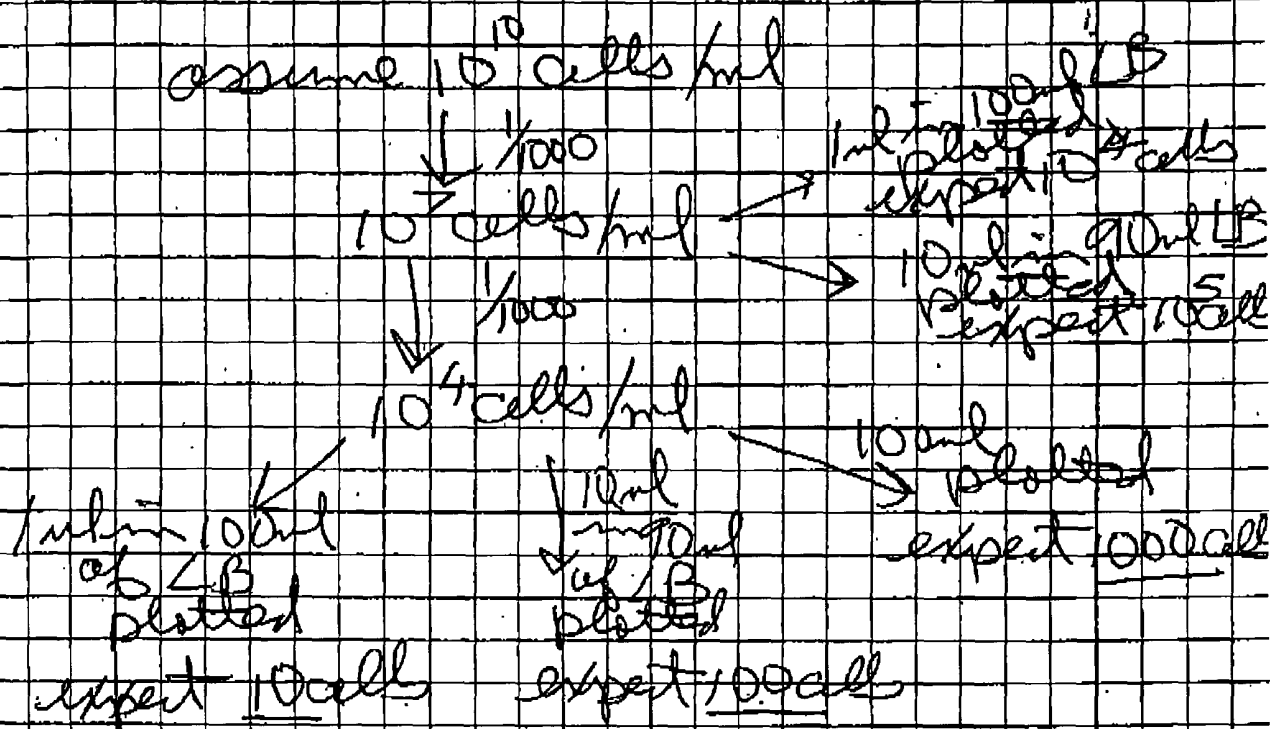 assume 10^10 cells/ml
↓ 1/1000
10^7 cells/ml
1 ul in 100ul LB
plotted
expect 10^4 cells
10 ul in 90ul LB
plotted
expect 10^5 cell
↓ 1/1000
10^4 cells/ml
1 ul in 100ul
of LB
plotted
expect 10 cells
10ul
in 90ul
of LB
plotted
expect 100 cells
100ul
plotted
expect 1000 cell